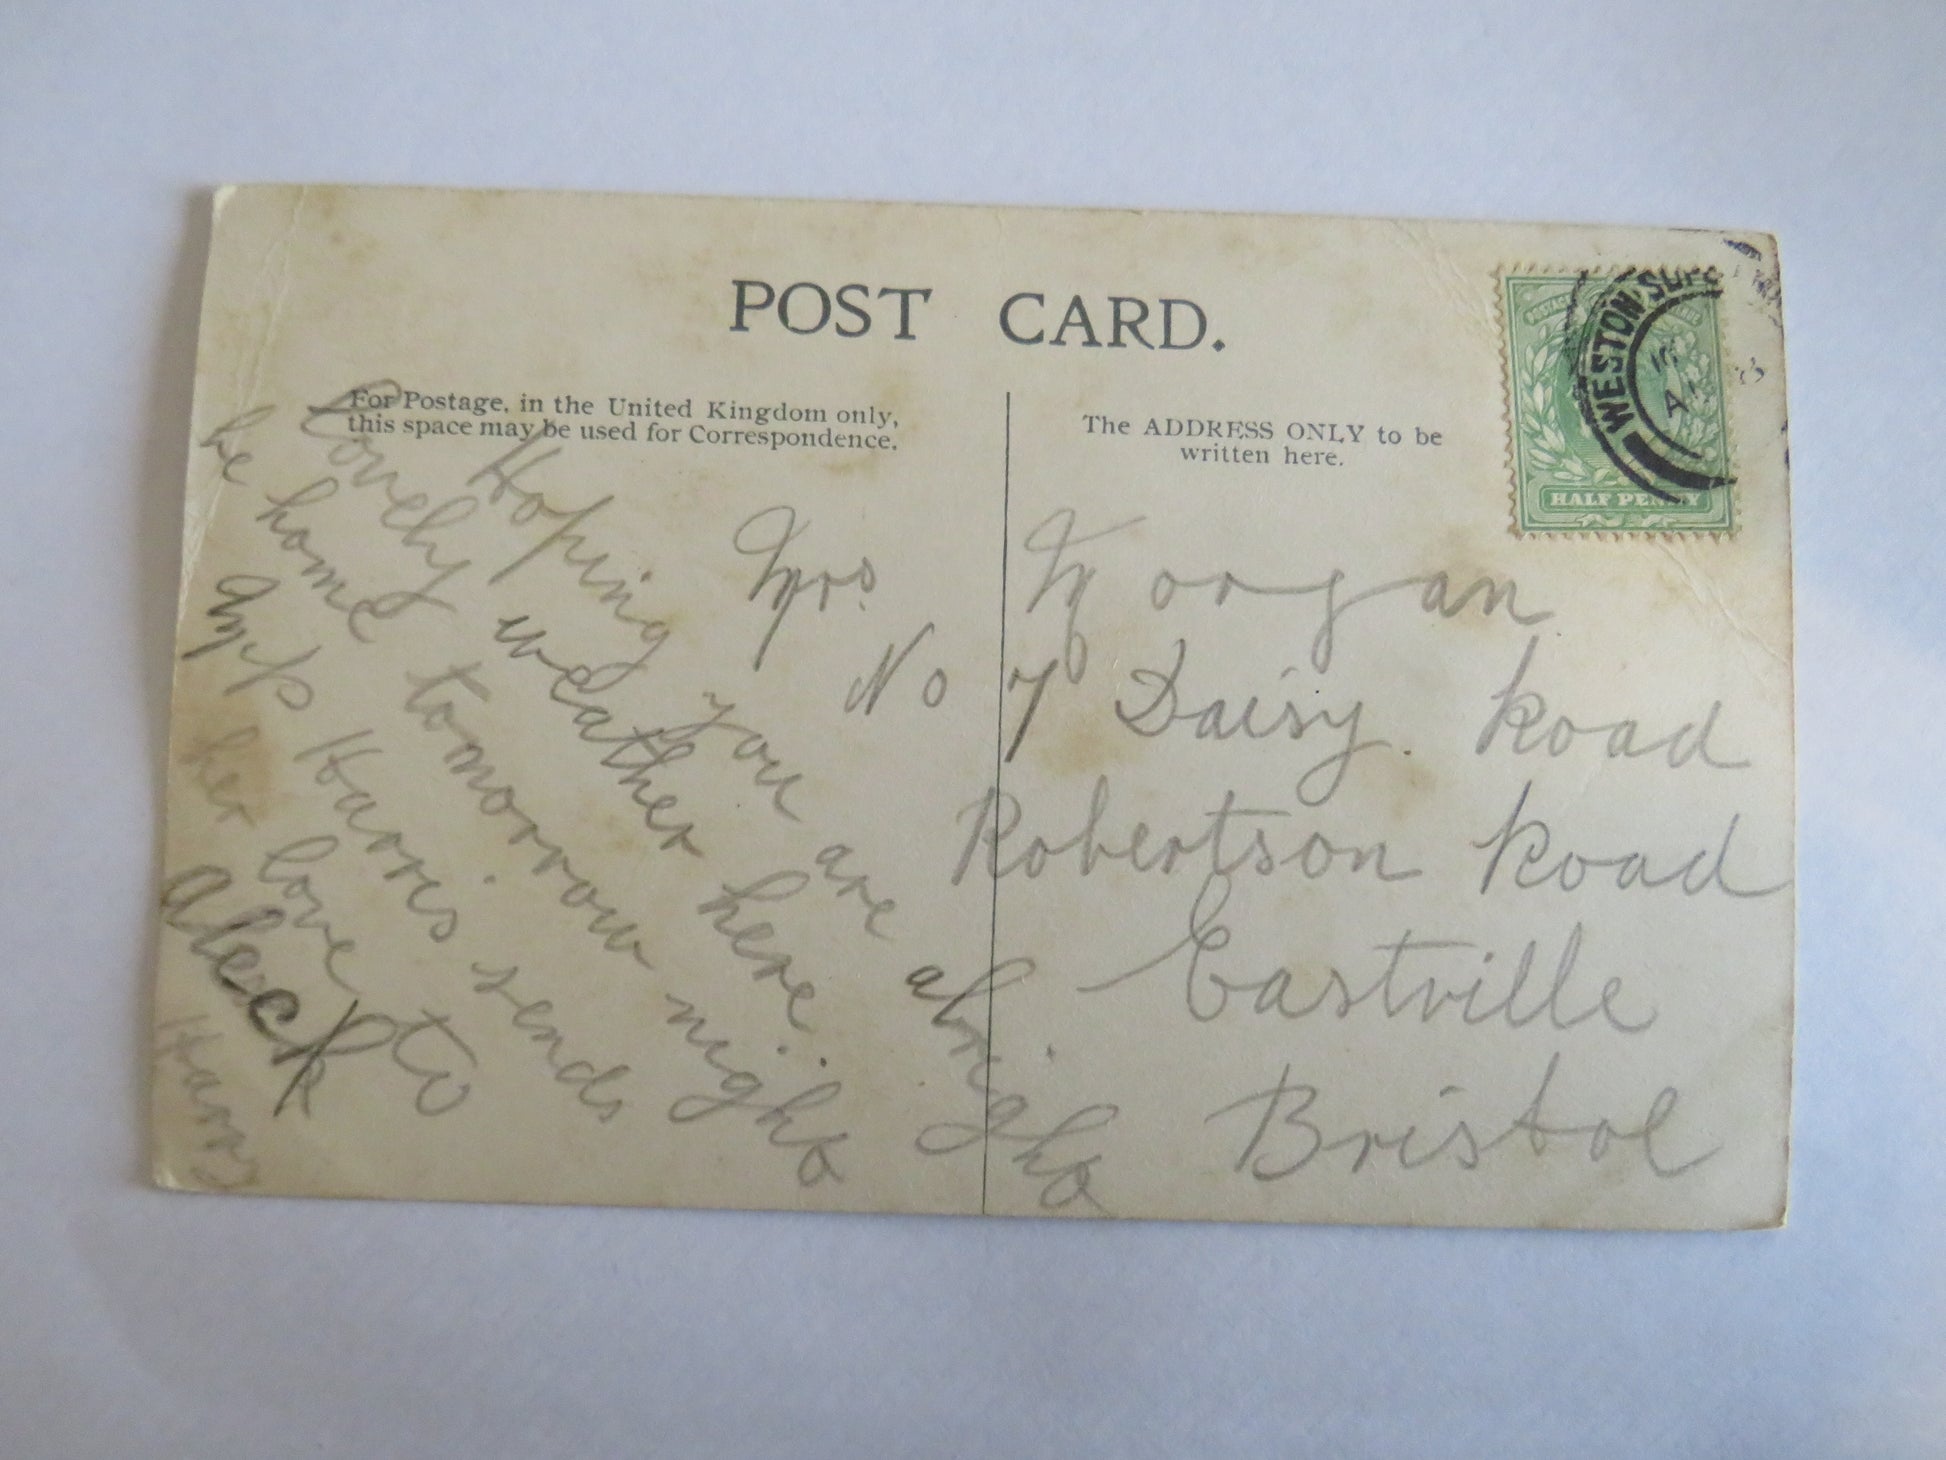 POST CARD.
For Postage, in the United Kingdom only,
this space may be used for Correspondence.
The ADDRESS ONLY to be
written here.
WESTON SUP
HALF PENNY
Hoping you are alright
Lovely weather here.
be home tomorrow night
Mrs Harris sends
her love to
Aleck
Harry
Mrs. Morgan
No 7 Daisy. Road
Robertson Road
Eastville
Bristol